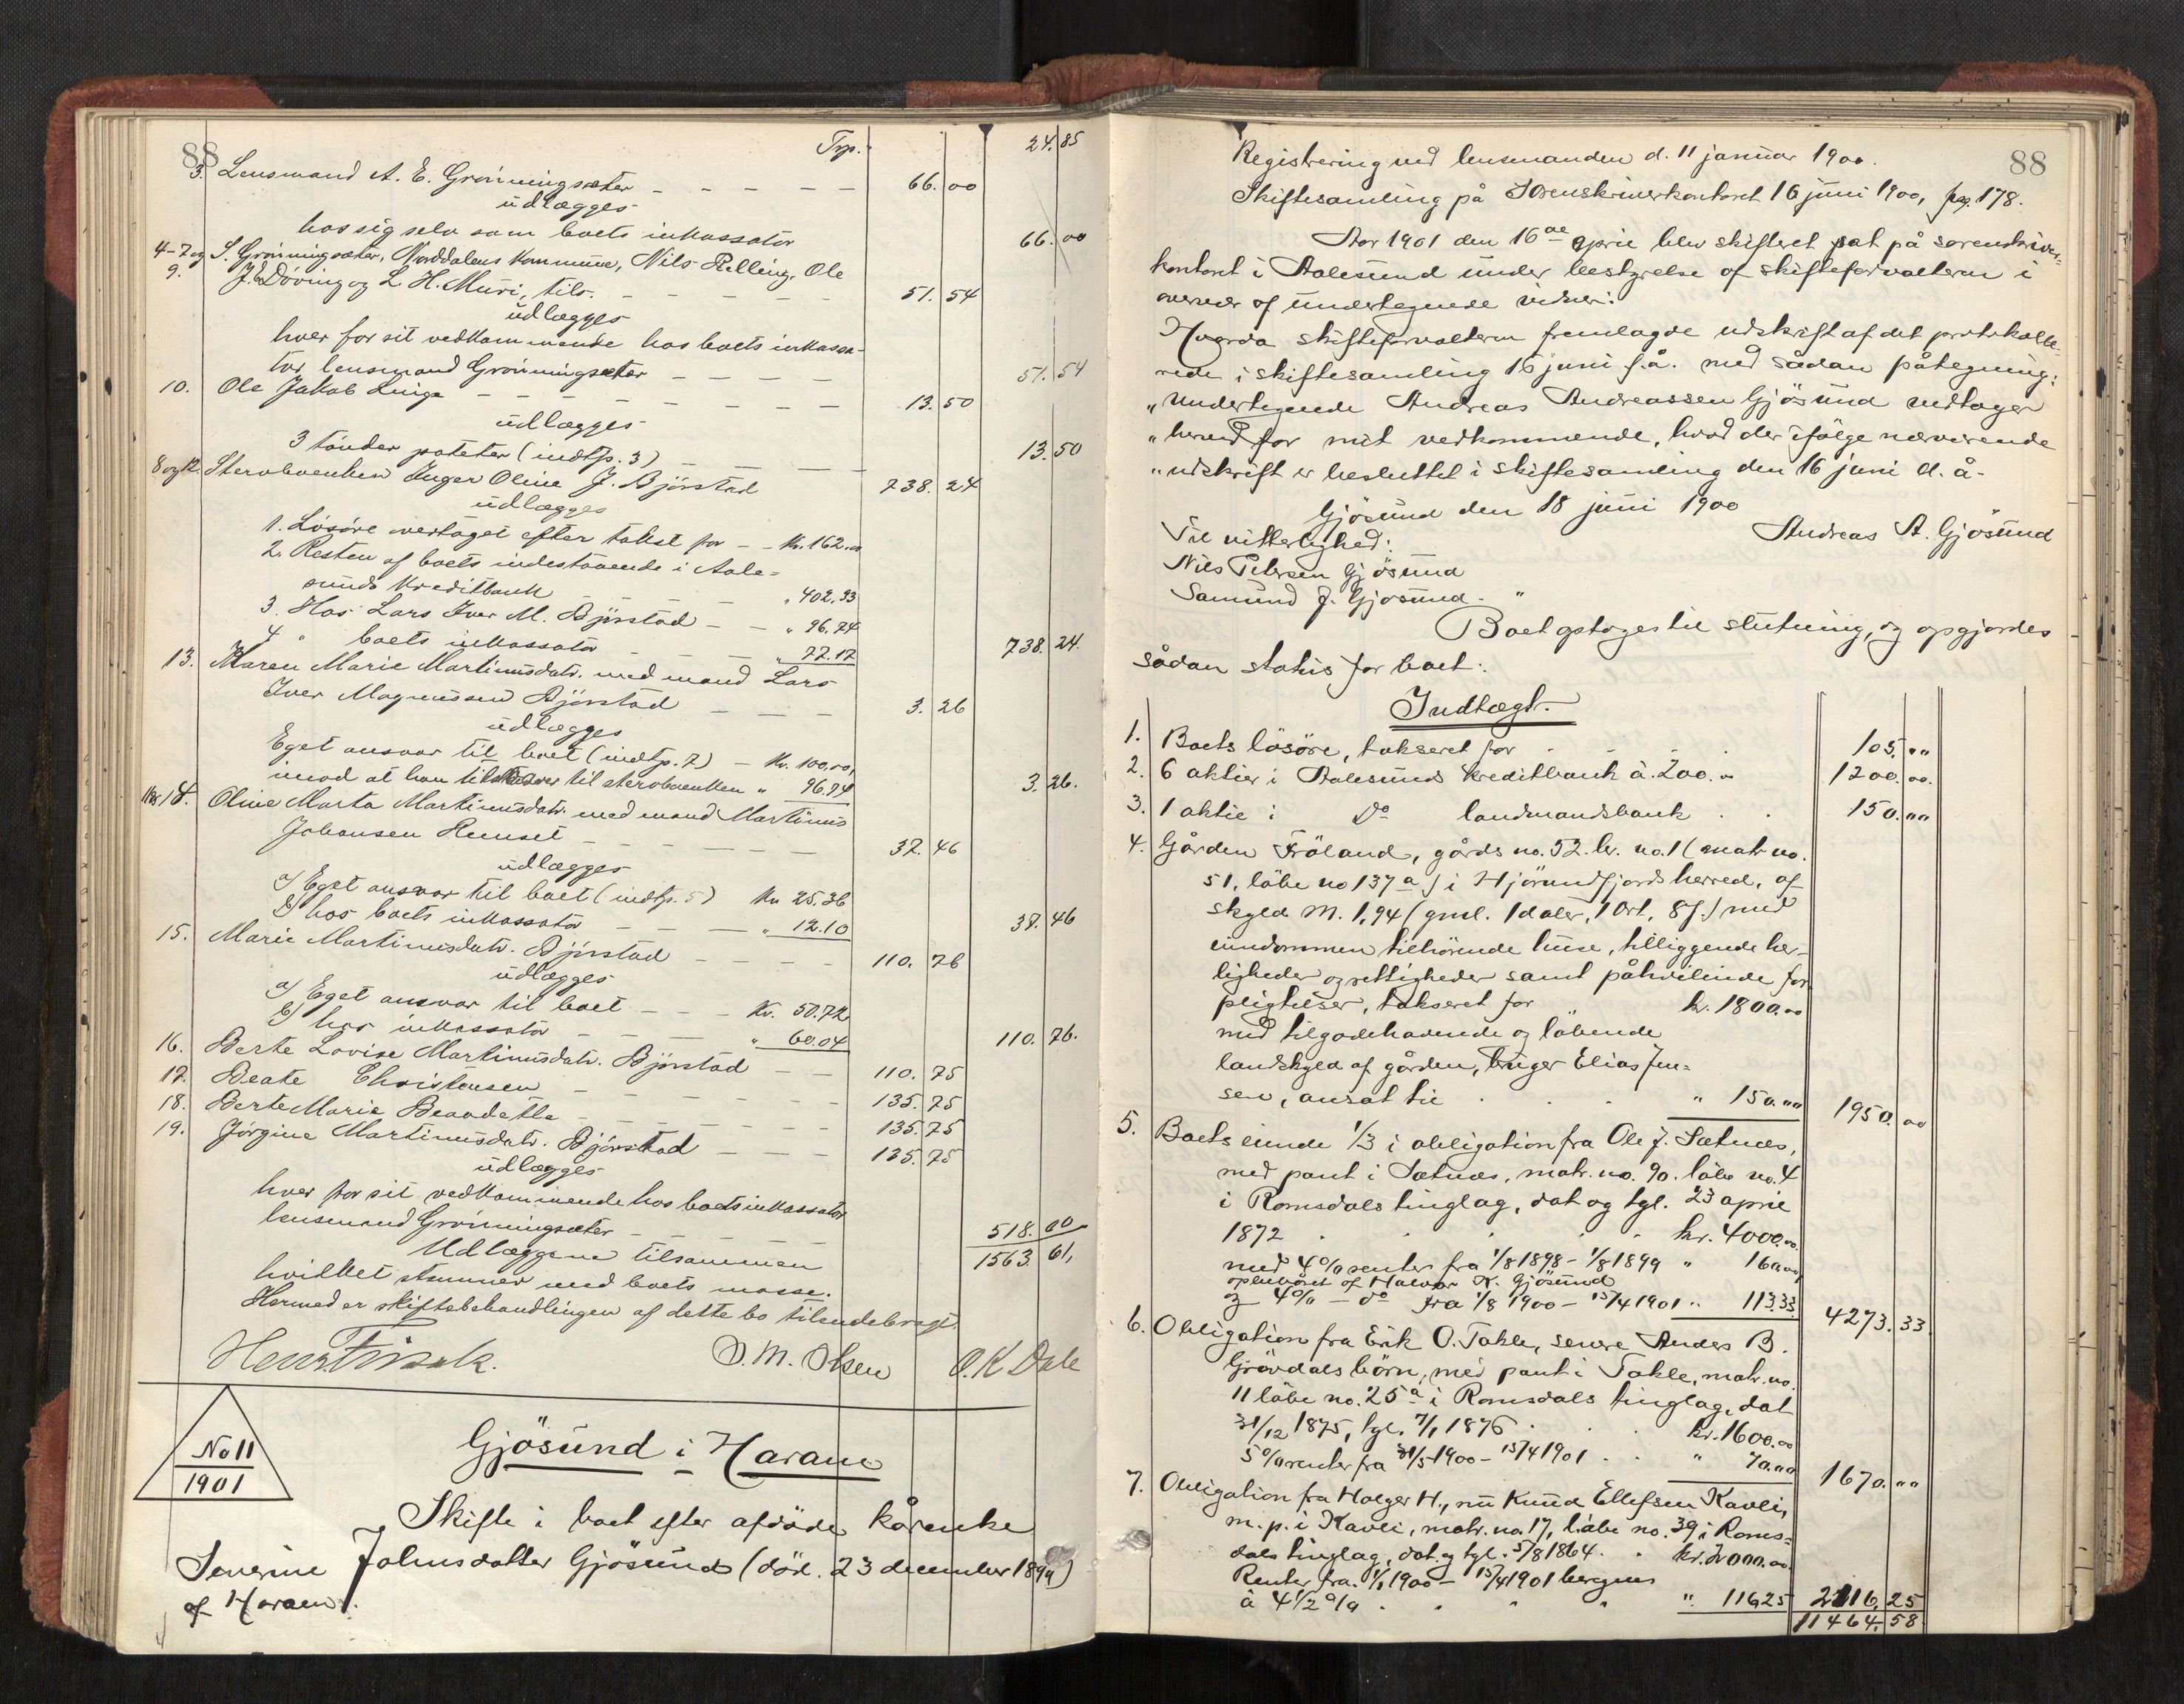 88
Trp. 24.85
3. Lensmand A. E. Grönningsæter – – – – – 66.00
udlægges
hos sig selv som boets inkassator 66.00
4–7 og S. Grönningsæter, Norddalens kommune, Nils Relling, Ole
9. J. Döving og L. H. Muri, tils. – – – – – 51.54
udlægges
hver for sit vedkommende hos boets inkassa-
tor lensmand Grönningsæter – – – – 51.54
10. Ole Jakob Linge – – – – – – – 13.50
udlægges
3 tönder poteter (indtp. 3) – – – – 13.50
8 og 12. Stervboenken Inger Oline J. Björstad 738.24
udlægges
1. Lösöre overtaget efter takst for – – kr. 162.00
2. Resten af boets indestaaende i Aale-
sunds Kreditbank – – – – „ 402.33
3. Hos Lars Iver M. Björstad – – „ 96.74
4 „ boets inkassator – – – „ 77.17 738.24.
13. Maren Marie Martinusdatr. med mand Lars
Iver Magnussen Björstad – – – 3.26
udlægges
Eget ansvar til boet (indtp. 7) – Kr. 100.00,
imod at han tilsvarer til stervboenken „ 96.74 3.26.
14. Oline Marta Martinusdatr. med mand Martinus
Johansen Remset – – – – – 37.46
udlægges
a) Eget ansvar til boet (indtp. 5) Kr. 25.36
b) hos boets inkassator – – – „ 12.10 37.46
15. Marie Martinusdatr. Björstad – – – – 110.76
udlægges
a) Eget ansvar til boet – – – Kr. 50.72
b) hos inkassator – – – „ 60.04 110.76.
16. Berte Lovise Martinusdatr. Björstad – – 110.75
17. Beate Christensen – – – – – – 135.75
18. Berte Marie – – – – – 135.75
19. Jörgine Martinusdatr. Björstad – – – 135.75
udlægges
hver for sit vedkommende hos boets inkassator
lensmand Grönningsæter – – – – 518.00
Udlæggene tilsammen 1563.61,
hvilket stemmer med boets masse.
Hermed er skiftebehandlingen af dette bo tilendebragt.
O. M. Olsen O. K. Dale
No 11
1901
Gjösund i Haram
Skifte i boet efter afdöde kårenke
Severine Johnsdatter Gjösund (död. 23 december 1899)
af Haram.
88
Registrering ved lensmanden d. 11 januar 1900.
Skiftesamling på Sorenskriverkontoret 16 juni 1900, pag. 178.
Aar 1901 den 16de april blev skifteret sat på sorenskriver-
kontoret i Aalesund under bestyrelse af skifteforvalteren i
overvær af undertegnede vidner:
Hvorda skifteforvalteren fremlagde udskrift af det protokolle-
rede i skiftesamling 16 juni f.å. med sådan påtegning:
„Undertegnede Andreas Andreassen Gjösund vedtager
„herved for mit vedkommende, hvad der ifölge nærværende
„udskrift er besluttet i skiftesamling den 16 juni d. å.
Gjösund den 18 juni 1900
Andreas A. Gjösund
Til vitterlighed:
Nils Petersen Gjösund
Samund J. Gjösund. “
Boet optoges til slutning, og opgjordes
sådan status for boet:
Indtægt.
1. Boets lösöre, takseret for . . . . 105.„„
2. 6 aktier i Aalesunds kreditbank à 200.„ 1200.00.
3. 1 aktie i do landmandsbank . . 150.„„
4. Gården Fröland, gårds no. 52. br. no. 1 (matr. no.
51, löbe no 137 a) i Hjörundfjords herred, af
skyld M. 1,94 (gml. 1 daler, 1 Ort, 8 f.) med
eiendommen tilhörende huse, tilliggende her-
ligheder og rettigheder samt påhvilende for-
pligtelser, takseret for kr. 1800.00
med tilgodehavende og löbende
landskyld af gården, bruger Elias Jen-
sen, ansat til . . . „ 150.„„ 1950.00
5. Boets eiende 1/3 i obligation fra Ole J. Sætnes,
med pant i Sætnes, matr. no. 90. löbe no. 4
i Romsdals tinglag, dat og tgl. 23 april
1872 . . . . . kr. 4000.00.
med 4% renter fra 1/8 1898 – 1/8 1899 „ 160.00,
oplevöret af Halvor K. Gjösund
og 4% – do fra 1/8 1900 – 15/4 1901 „ 113.33 4273.33
6. Obligation fra Erik O. Takle, senere Anders B.
Grövdals börn, med pant i Takle, matr. no.
11 löbe no. 25 a i Romsdals tinglag, dat
31/12 1875, tgl. 7/1 1876 . . . kr. 1600.00
5% renter fra 31/5 1900 – 15/4 1901 . . „ 70.00 1670.„„
7. Obligation fra Holger H., nu Knud Ellefsen Kavli,
m. p. i Kavli, matr. no. 17, löbe no. 39 i Roms-
dals tinglag, dat. og tgl. 5/8 1864. . kr. 2000.00.
Renter fra 1/1 1900 – 15/4 1901 beregnes
à 4 1/2 % . . . . „ 116,25 2116,25
11464.58